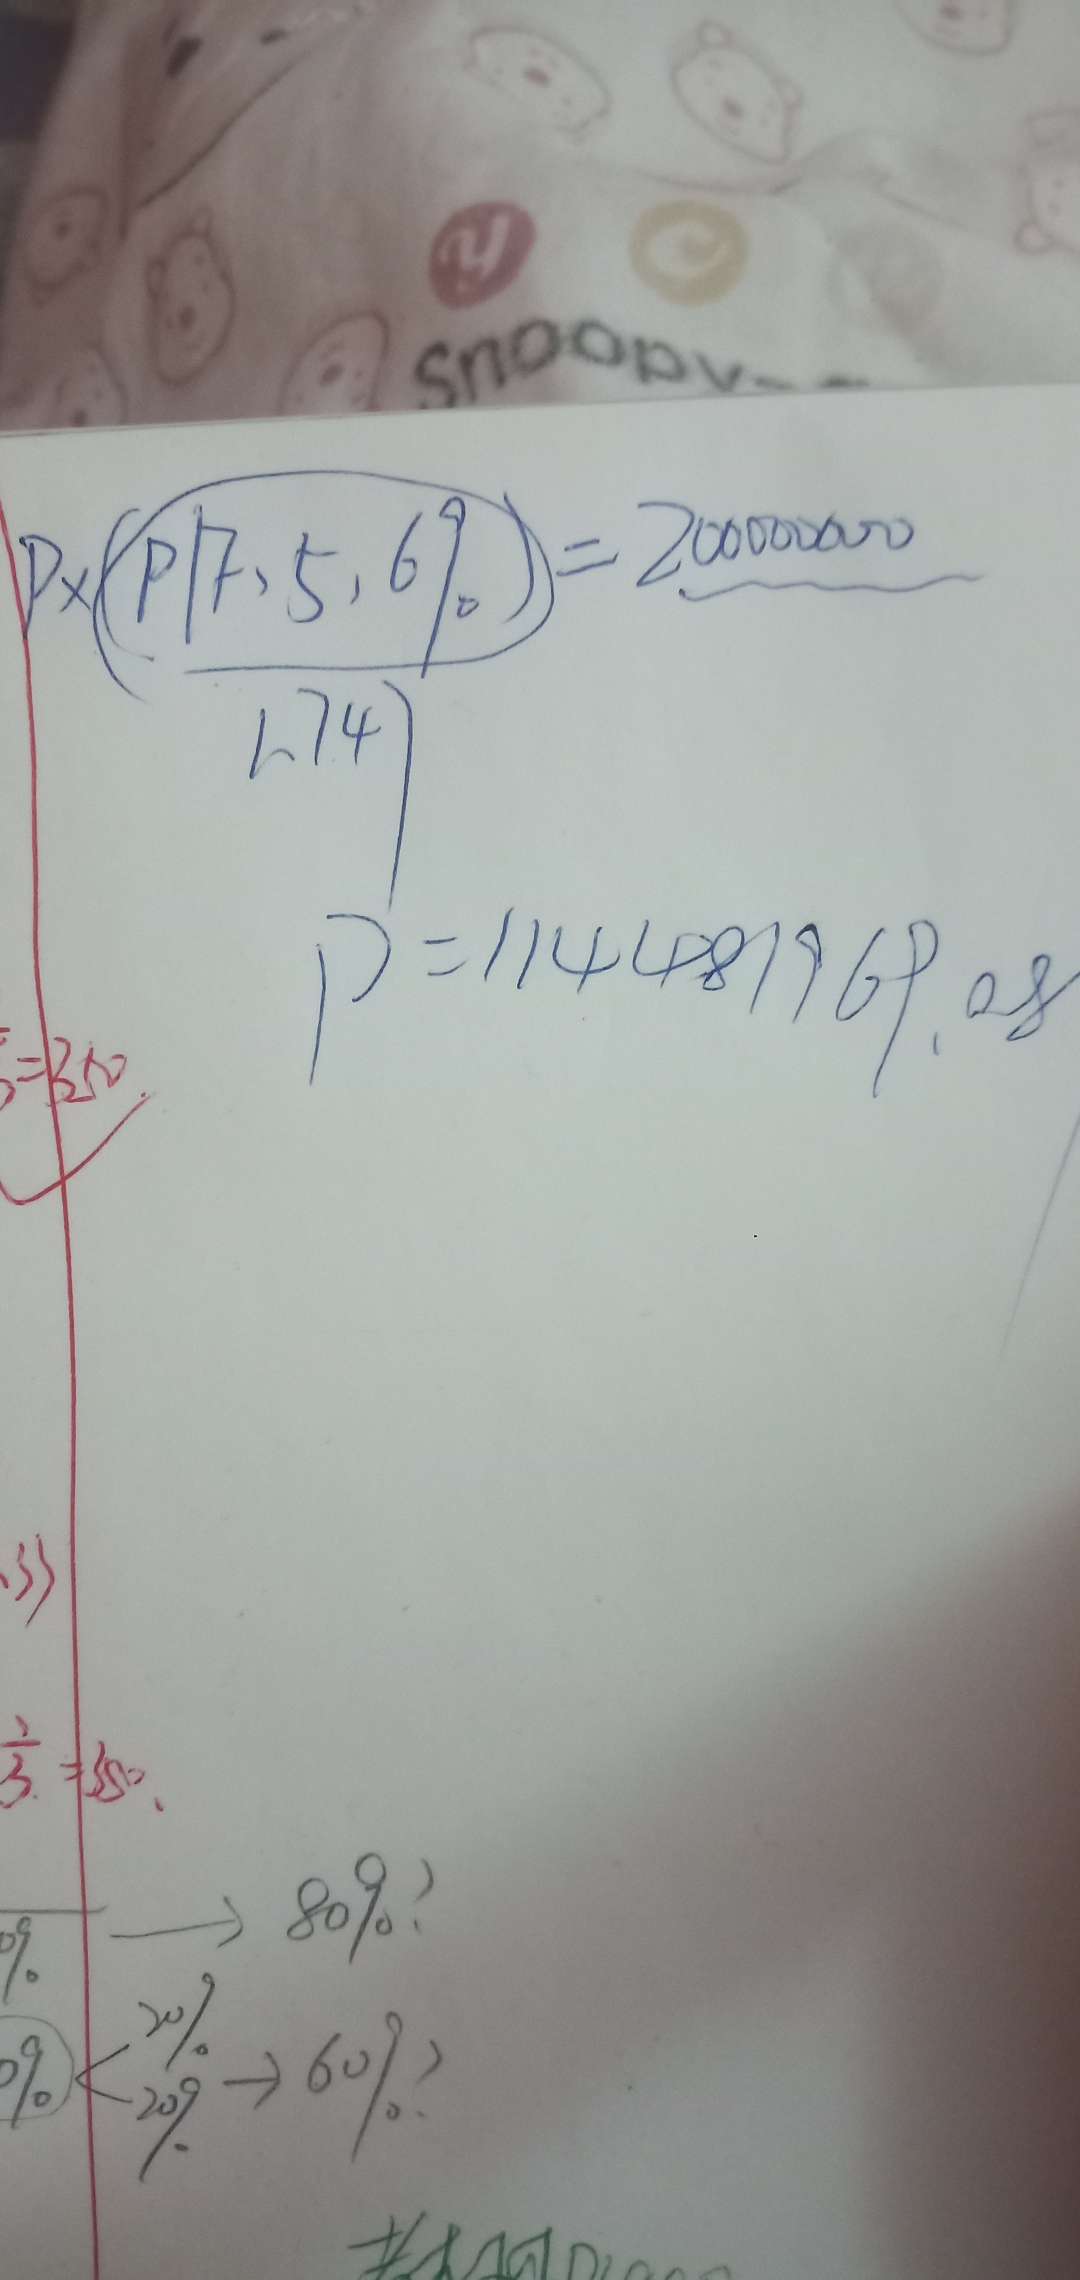 snoopy
P×(P/F,5,6%)=200000000
1.74
P=114481969.08
=350.
.33
2/3=350.
0% → 80%?
20%
0% < 20% → 60%?